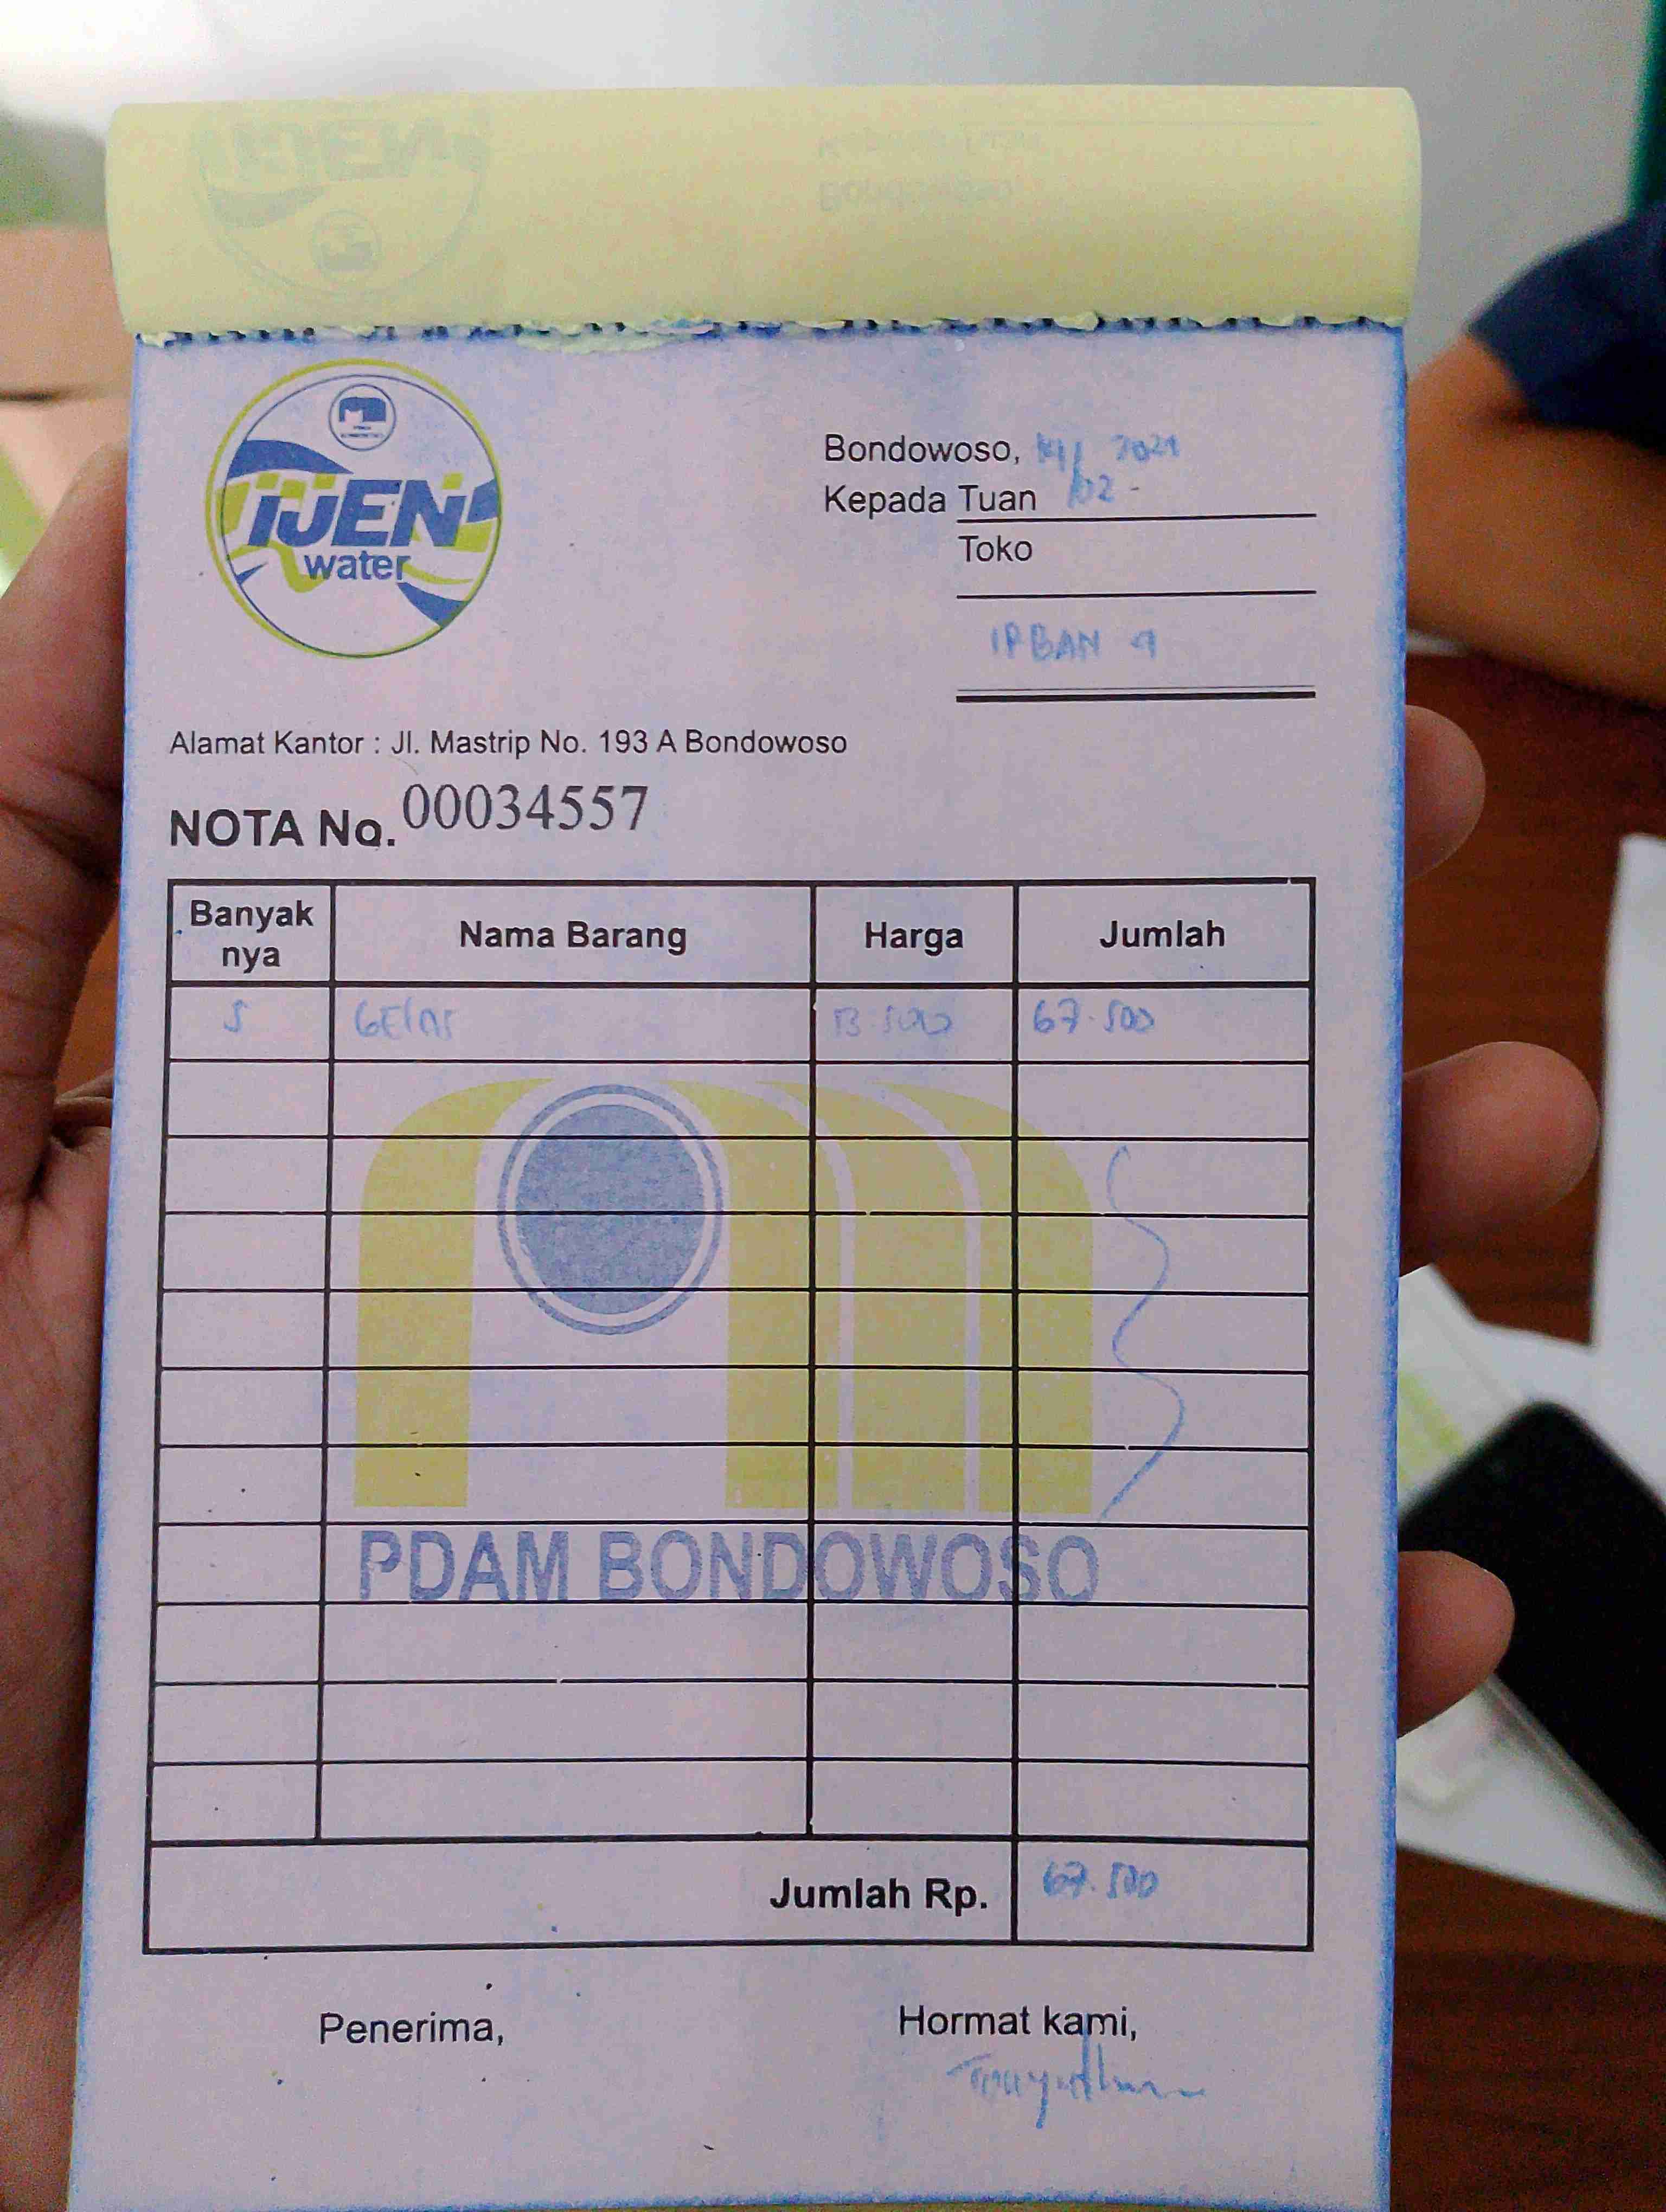 IJEN
water
Bondowoso, 2021
Kepada Tuan 02 -
Toko
IRBAN
Alamat Kantor : Jl. Mastrip No. 193 A Bondowoso
NOTA No. 00034557
Banyak nya Nama Barang Harga Jumlah
5 GElAS 13.500 67.500
PDAM BONDOWOSO
Jumlah Rp. 67.500
Penerima, Hormat kami,